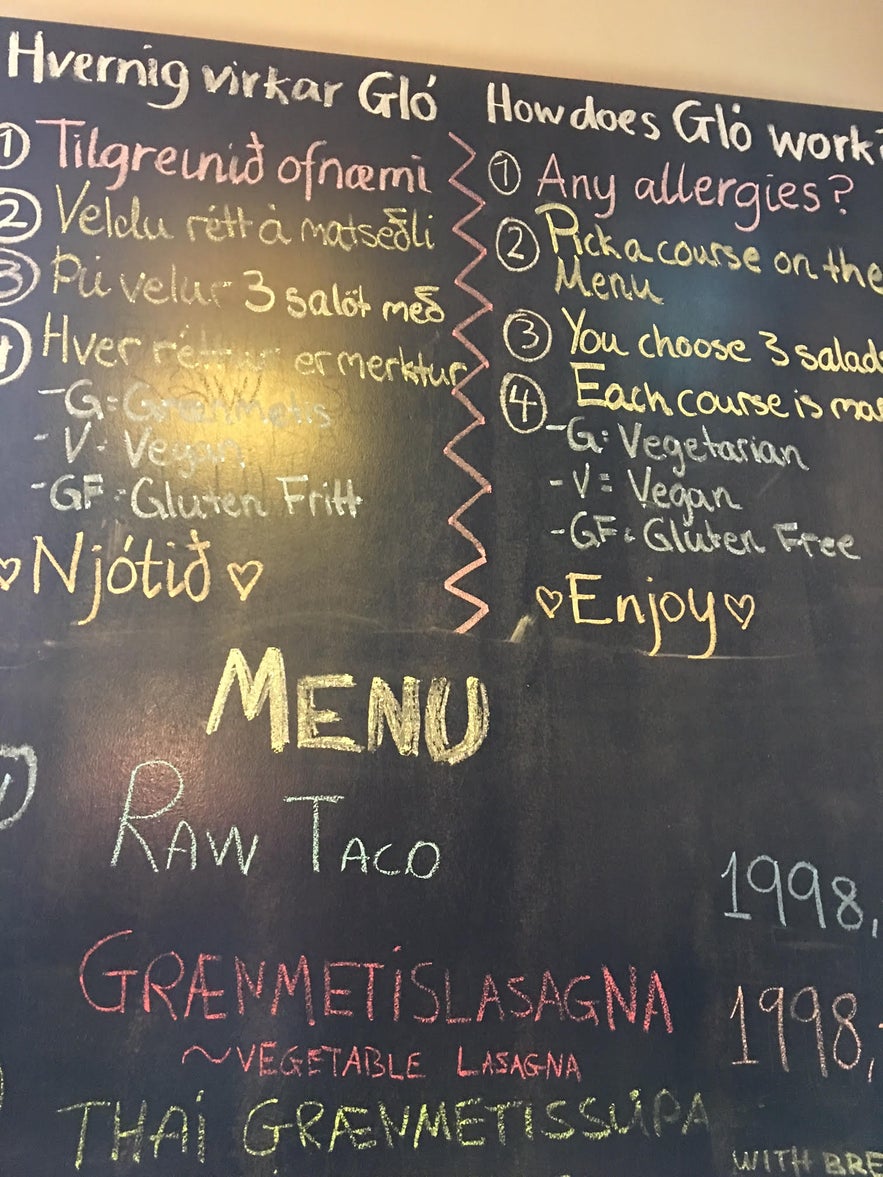 Hvernig virkar Gló
① Tilgreinið ofnæmi
② Veldu rétt á matseðli
③ Þú velur 3 salöt með
④ Hver réttur er merktur
-G=Grænmetis
-V= Vegan
-GF=Gluten Frítt
♡Njótið♡
How does Gló work?
① Any allergies?
② Pick a course on the
Menu
③ You choose 3 salads
④ Each course is mar
-G: Vegetarian
-V= Vegan
-GF: Gluten Free
♡Enjoy♡
MENU
RAW TACO 1998,
GRÆNMETISLASAGNA 1998,
~VEGETABLE LASAGNA
THAI GRÆNMETISSÚPA
WITH BRE